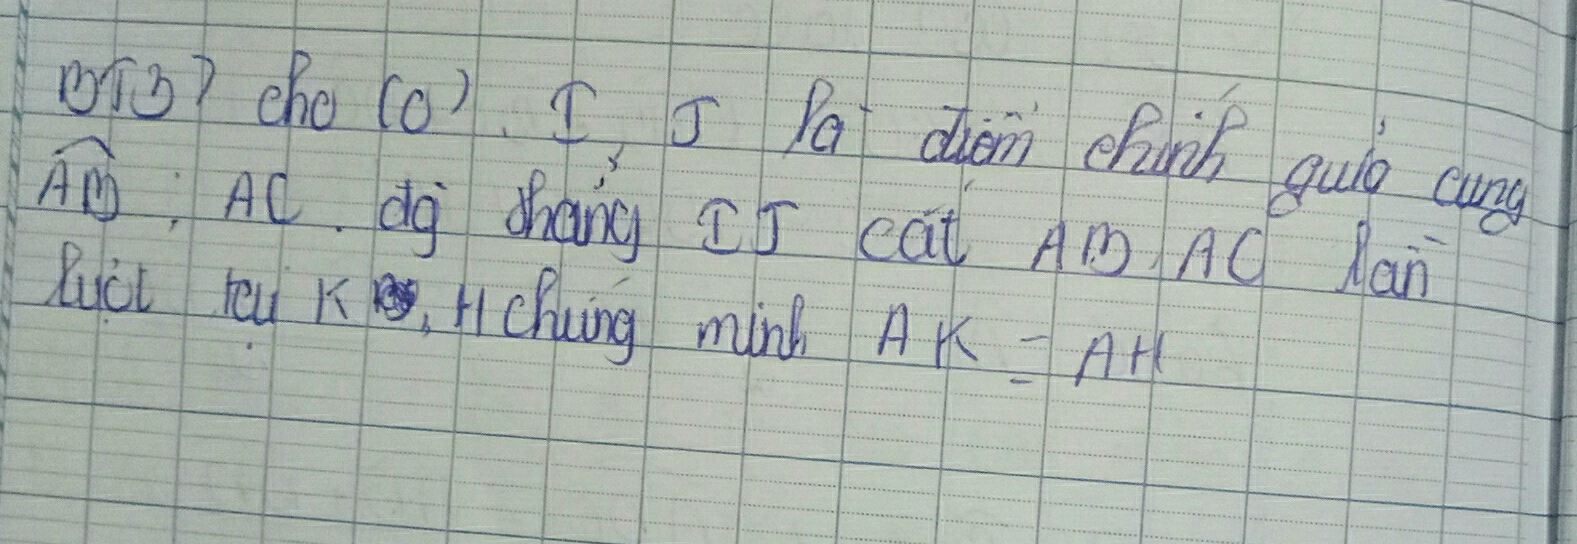 BT3) cho (O). I, J là điểm chính giữa cung
AB; AC. đg thẳng IJ cắt AB, AC lần
lượt tại K, H chứng minh AK = AH